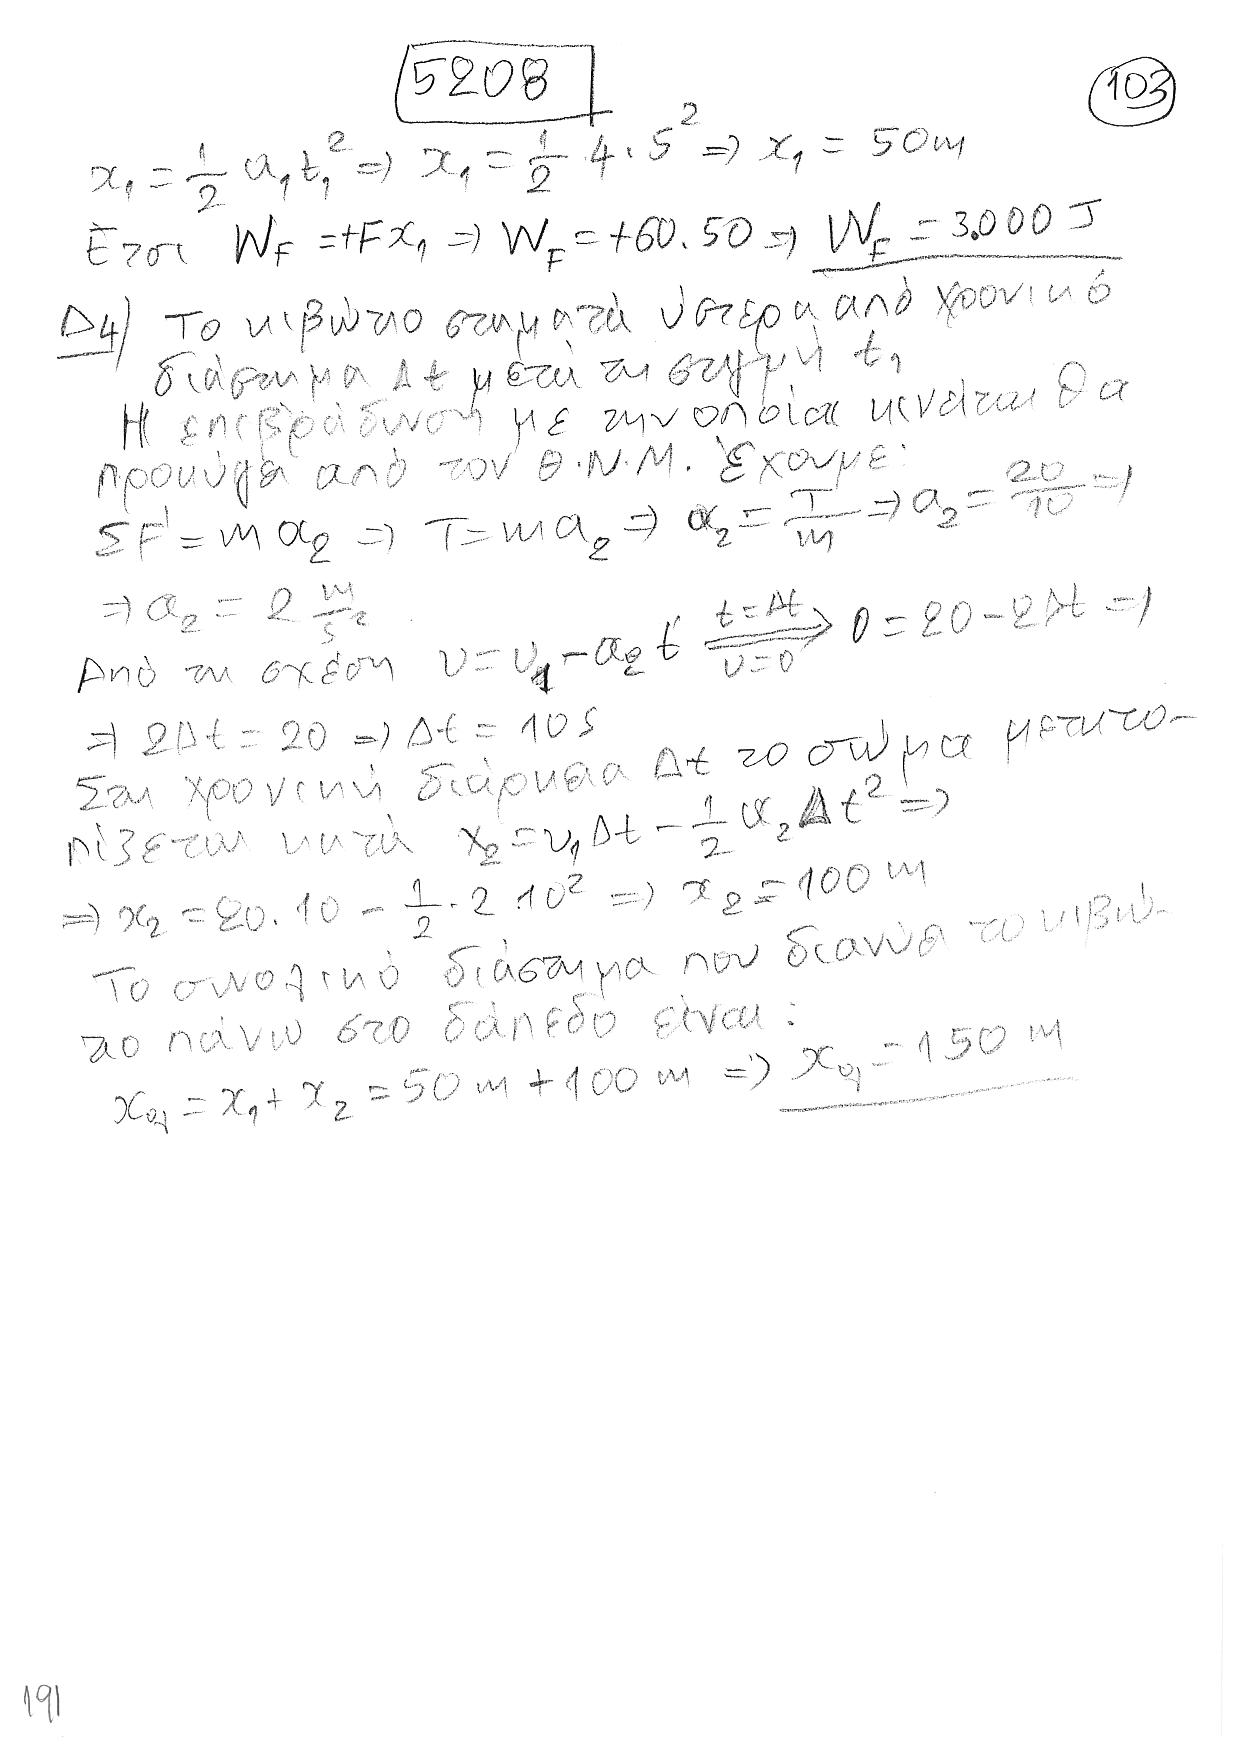 5208
103
x₁ = 1/2 α₁t₁² => x₁ = 1/2 · 4 · 5² => x₁ = 50m
Έτσι W_F = +Fx₁ => W_F = +60.50 => W_F = 3.000 J
Δ4) Το κιβώτιο σταματά ύστερα από χρονικό
διάστημα Δt μετά τη στιγμή t₁
Η επιβράδυνση με την οποία κινείται θα
προκύψει από τον Θ.Ν.Μ. Έχουμε:
ΣF = m α₂ => T = m α₂ => α₂ = T/m => α₂ = 20/10 =>
=> α₂ = 2 m/s²
Από τη σχέση υ = υ₁ - α₂ t t=Δt υ=0 => 0 = 20 - 2Δt =>
=> 2Δt = 20 => Δt = 10s
Στη χρονική διάρκεια Δt το σώμα μετατο-
πίζεται κατά x₂ = υ₁Δt - 1/2 α₂Δt² =>
=> x₂ = 20.10 - 1/2 · 2 10² => x₂ = 100 m
Το συνολικό διάστημα που διανύει το κιβώ-
τιο πάνω στο δάπεδο είναι:
x_ολ = x₁ + x₂ = 50 m + 100 m => x_ολ = 150 m
191